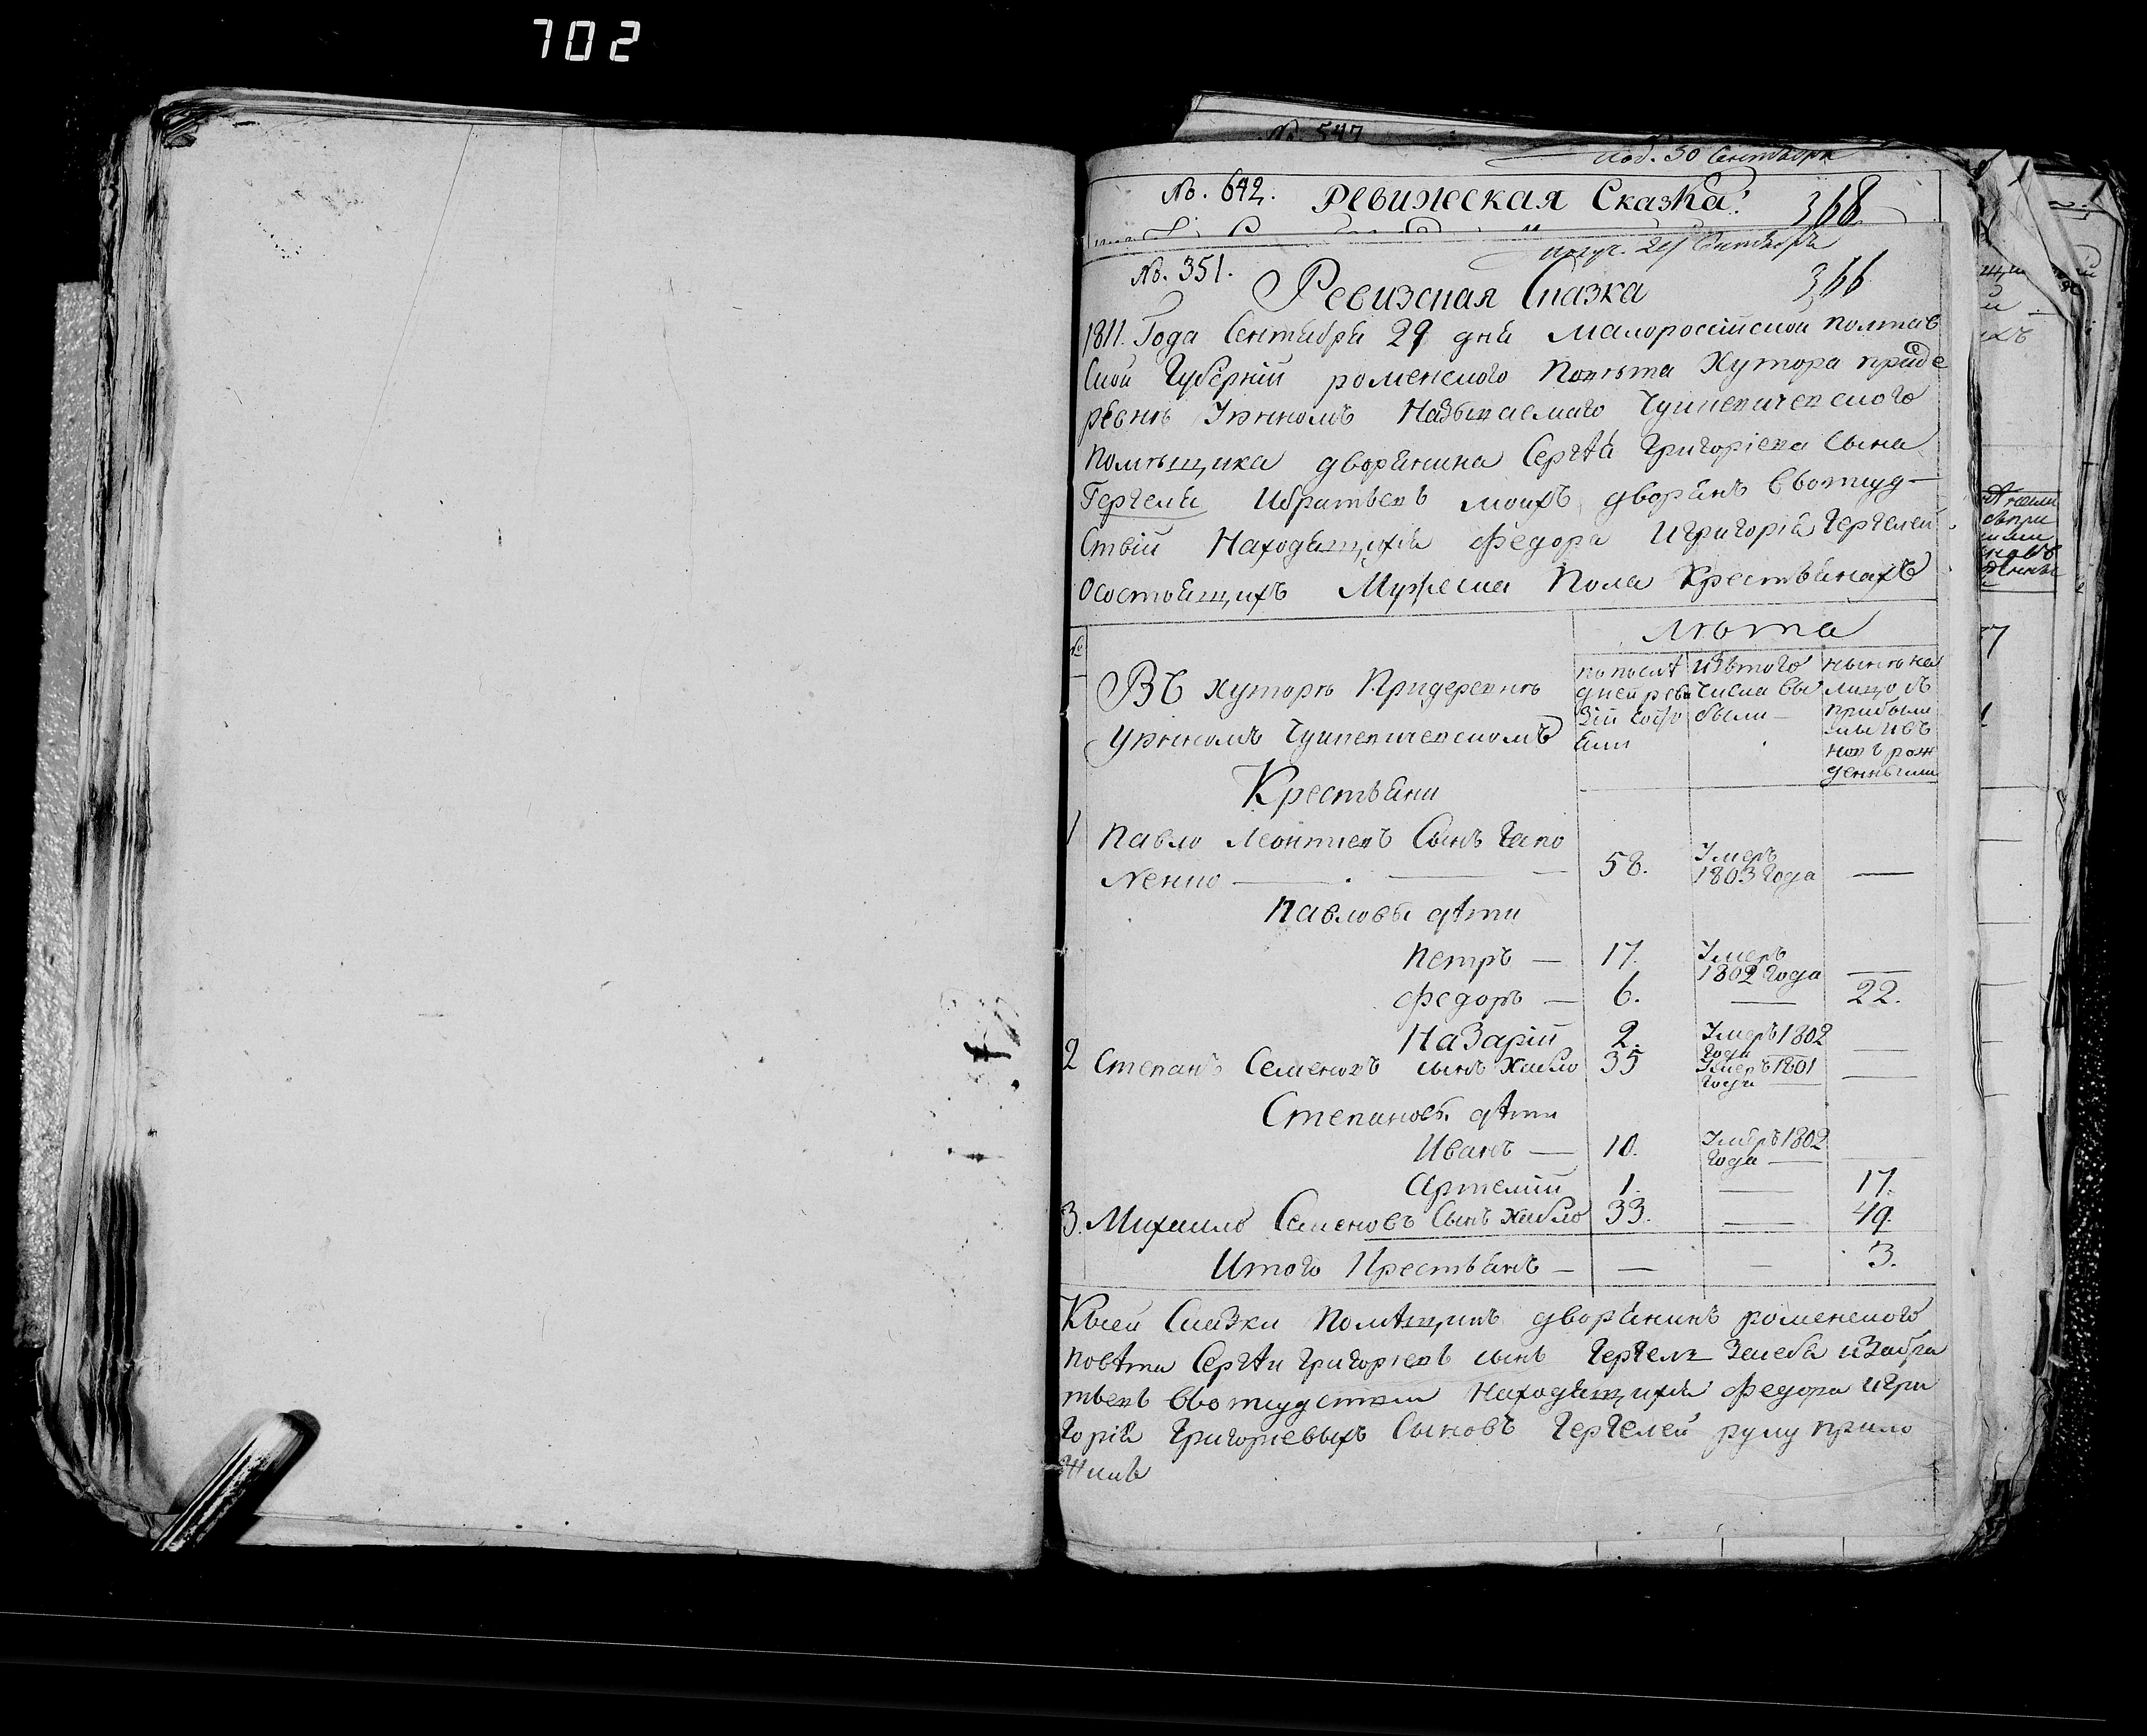 702
No. 547
пол. 30 Сентября
No. 642. Ревижская Сказка: 368
получ. 29 Сентября
No. 351. 366
Ревизская Сказка
1811. Года Сентября 29 дня Малороссійской Полтав
ской Губерніи роменского Повѣта Хутора приде
ревнѣ Называемаго
помѣщика дворянина Сергѣя Григоріева сына
Гергеля Ибратьевъ моихъ дворянъ Ввотлуд-
ствіи Находящихся Федора Игригорія Гергелей
Осостоящихъ Мужеска Пола Крестьянахъ
№
Лѣта
Въ хуторѣ Придеревнѣ
Крестьяни
по послѣ
дней реви
зіи состо
яли
изътого
числа вы
были
нынѣ на
лицо съ
прибыли
ми ивъ
новъ рож
денными
1 Павло Леонтіевъ Сынъ Гапо
ненко — 58. Умеръ 1803 Года —
Павловы дѣти
Петръ — 17. Умеръ 1802 Года —
Федоръ — 6. — 22.
Назарій 2. Умеръ 1802 Года —
2 Степанъ Семеновъ сынъ Хибло 35 Умеръ 1801 Года —
Степановы дѣти
Иванъ — 10. Умеръ 1802 Года —
Артемій 1. — 17.
3. Михаило Семеновъ Сынъ Хибло 33. — 49.
Итого Крестьянъ — — — 3.
Ксей Сказки Помѣщикъ дворянинъ роменского
повѣта Сергѣй Григоріевъ сынъ Гергель Засебя иЗабра
тьевъ Находящихся Федора игри
горія Григориевыхъ Сыновъ Гергелей руку прило
жилъ